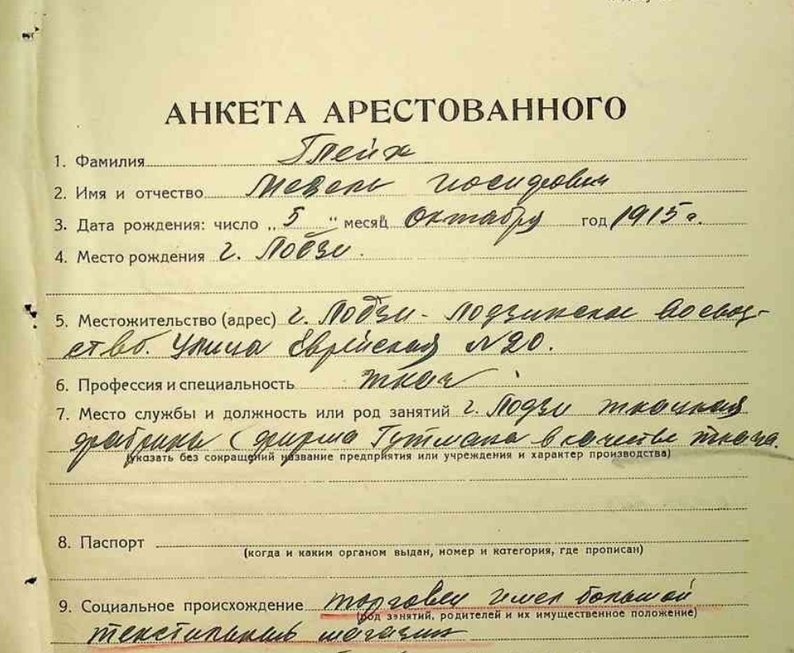 АНКЕТА АРЕСТОВАННОГО
1. Фамилия Глейх
2. Имя и отчество Иосифович
3. Дата рождения: число „5“ месяц октябру год 1915 г.
4. Место рождения г. Лодзи.
5. Местожительство (адрес) г. Лодзи - Лодзинское воевод-
ство. Улица Еврейская N20.
6. Профессия и специальность ткач
7. Место службы и должность или род занятий г. Лодзи ткацкая
фабрика (фирма Гутмана в качестве ткача.
(указать без сокращений название предприятия или учреждения и характер производства)
8. Паспорт
(когда и каким органом выдан, номер и категория, где прописан)
9. Социальное происхождение торговец имел большой
(род занятий, родителей и их имущественное положение)
текстильный магазин